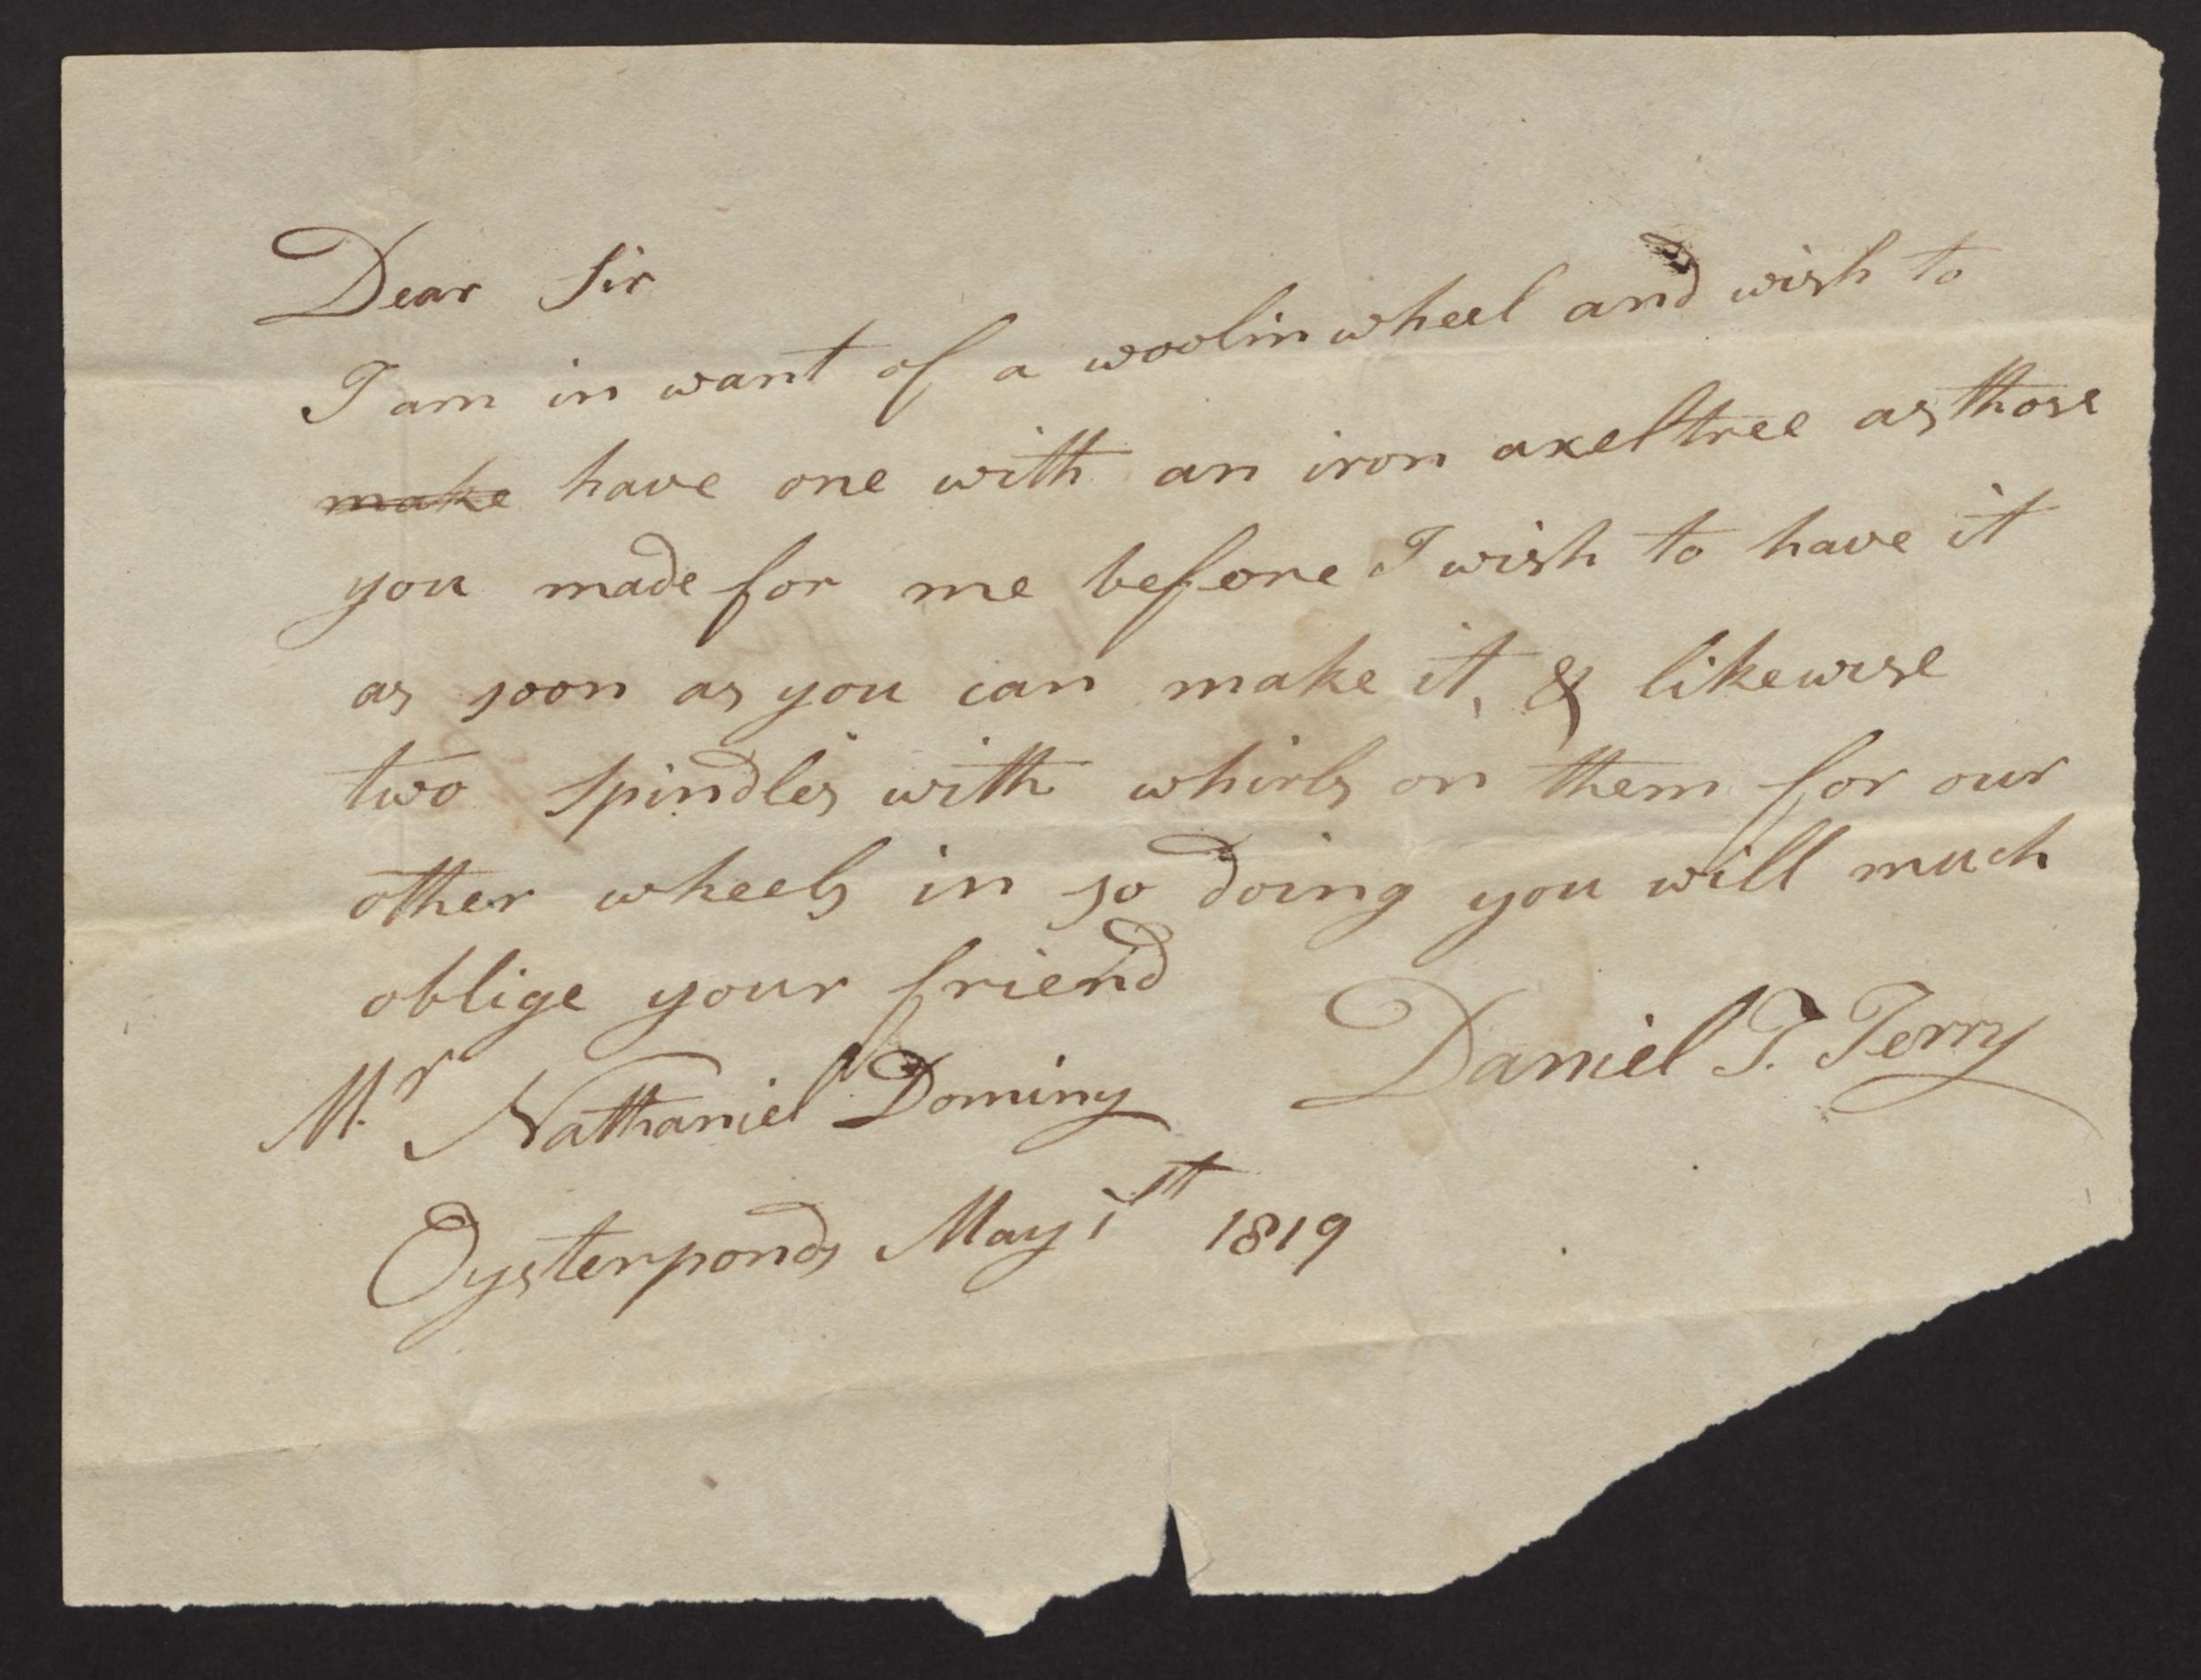 Dear Sir
I am in want of a woolin wheel and wish to
make have one with an iron axeltree as those
you made for me before I wish to have it
as soon as you can make it, & likewise
two spindles with whirls on them for our
other wheels in so doing you will much
oblige your friend
Daniel T. Terry
Mr Nathaniel Dominy
Oysterponds May 1st 1819